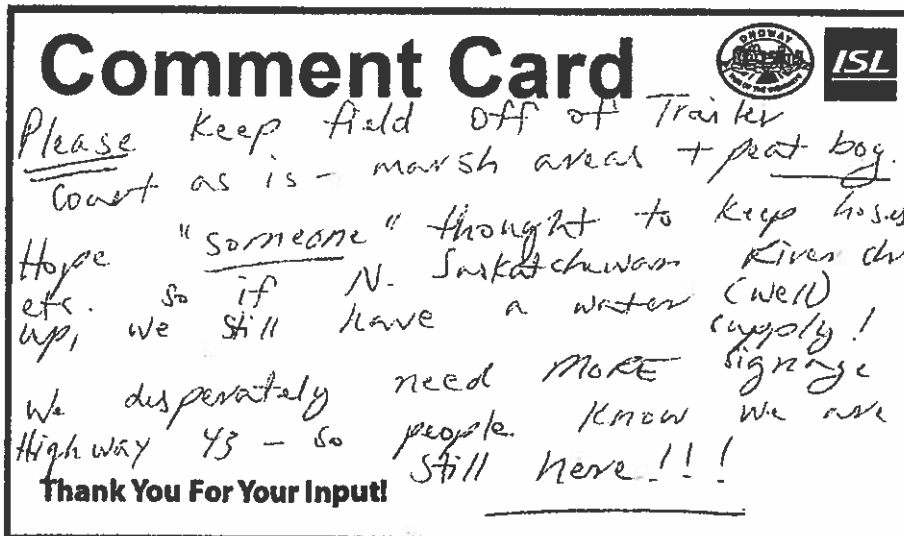 Comment Card
ONOWAY
ISL
Please keep field off of Trailer
Court as is - marsh areas + peat bog.
Hope "someone" thought to keep hoses
etc. so if N. Saskatchewan River
up, we still have a water (well)
supply!
We desperately need MORE signage
Highway 43 - so people know we are
still here!!!
Thank You For Your Input!